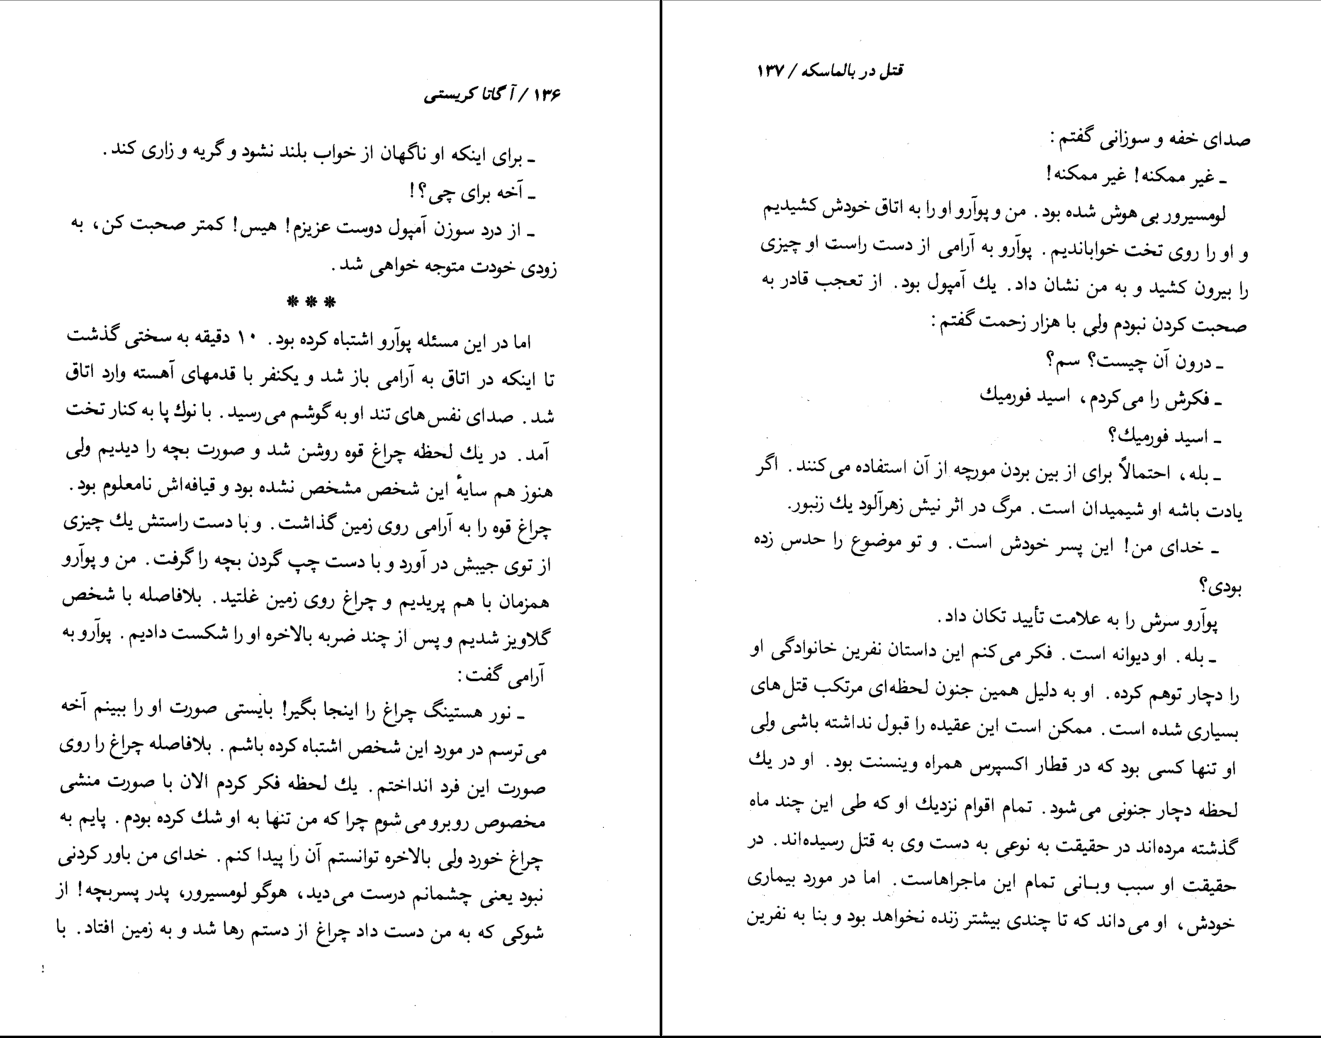 ۱۳۶ / آگاتا کریستی
ـ برای اینکه او ناگهان از خواب بلند نشود و گریه و زاری کند.
ـ آخه برای چی؟!
ـ از درد سوزن آمپول دوست عزیزم! هیس! کمتر صحبت کن، به
زودی خودت متوجه خواهی شد.
***
اما در این مسئله پوآرو اشتباه کرده بود. ۱۰ دقیقه به سختی گذشت
تا اینکه در اتاق به آرامی باز شد و یکنفر با قدمهای آهسته وارد اتاق
شد. صدای نفس‌های تند او به گوشم می‌رسید. با نوك پا به کنار تخت
آمد. در یك لحظه چراغ قوه روشن شد و صورت بچه را دیدیم ولی
هنوز هم سایهٔ این شخص مشخص نشده بود و قیافه‌اش نامعلوم بود.
چراغ قوه را به آرامی روی زمین گذاشت. و با دست راستش یك چیزی
از توی جیبش در آورد و با دست چپ گردن بچه را گرفت. من و پوآرو
همزمان با هم پریدیم و چراغ روی زمین غلتید. بلافاصله با شخص
گلاویز شدیم و پس از چند ضربه بالاخره او را شکست دادیم. پوآرو به
آرامی گفت:
ـ نور هستینگ چراغ را اینجا بگیر! بایستی صورت او را ببینم آخه
می‌ترسم در مورد این شخص اشتباه کرده باشم. بلافاصله چراغ را روی
صورت این فرد انداختم. یك لحظه فکر کردم الان با صورت منشی
مخصوص روبرو می‌شوم چرا که من تنها به او شك کرده بودم. پایم به
چراغ خورد ولی بالاخره توانستم آن را پیدا کنم. خدای من باور کردنی
نبود یعنی چشمانم درست می‌دید، هوگو لومسیرور، پدر پسربچه! از
شوکی که به من دست داد چراغ از دستم رها شد و به زمین افتاد. با
قتل در بالماسکه / ۱۳۷
صدای خفه و سوزانی گفتم:
ـ غیر ممکنه! غیر ممکنه!
لومسیرور بی هوش شده بود. من و پوآرو او را به اتاق خودش کشیدیم
و او را روی تخت خواباندیم. پوآرو به آرامی از دست راست او چیزی
را بیرون کشید و به من نشان داد. یك آمپول بود. از تعجب قادر به
صحبت کردن نبودم ولی با هزار زحمت گفتم:
ـ درون آن چیست؟ سم؟
ـ فکرش را می‌کردم، اسید فورمیك
ـ اسید فورمیك؟
ـ بله، احتمالاً برای از بین بردن مورچه از آن استفاده می‌کنند. اگر
یادت باشه او شیمیدان است. مرگ در اثر نیش زهرآلود یك زنبور.
ـ خدای من! این پسر خودش است. و تو موضوع را حدس زده
بودی؟
پوآرو سرش را به علامت تأیید تکان داد.
ـ بله. او دیوانه است. فکر می‌کنم این داستان نفرین خانوادگی او
را دچار توهم کرده. او به دلیل همین جنون لحظه‌ای مرتکب قتل‌های
بسیاری شده است. ممکن است این عقیده را قبول نداشته باشی ولی
او تنها کسی بود که در قطار اکسپرس همراه وینسنت بود. او در یك
لحظه دچار جنونی می‌شود. تمام اقوام نزدیك او که طی این چند ماه
گذشته مرده‌اند در حقیقت به نوعی به دست وی به قتل رسیده‌اند. در
حقیقت او سبب وبـانی تمام این ماجراهاست. اما در مورد بیماری
خودش، او می‌داند که تا چندی بیشتر زنده نخواهد بود و بنا به نفرین